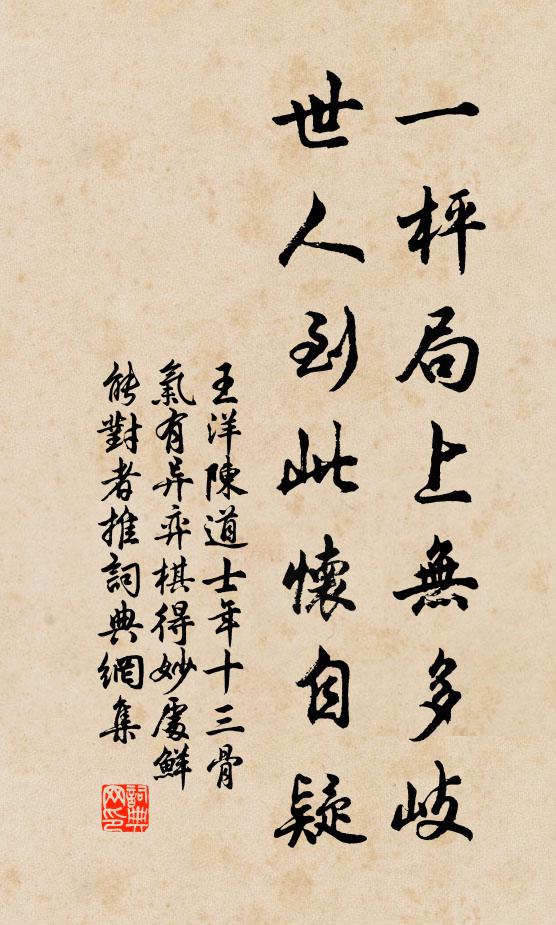 一枰局上無多岐
世人到此懷自疑
王洋陳道士年十三骨
氣有异弈棋得妙處鮮
能對者推詞典網集
詞典网印